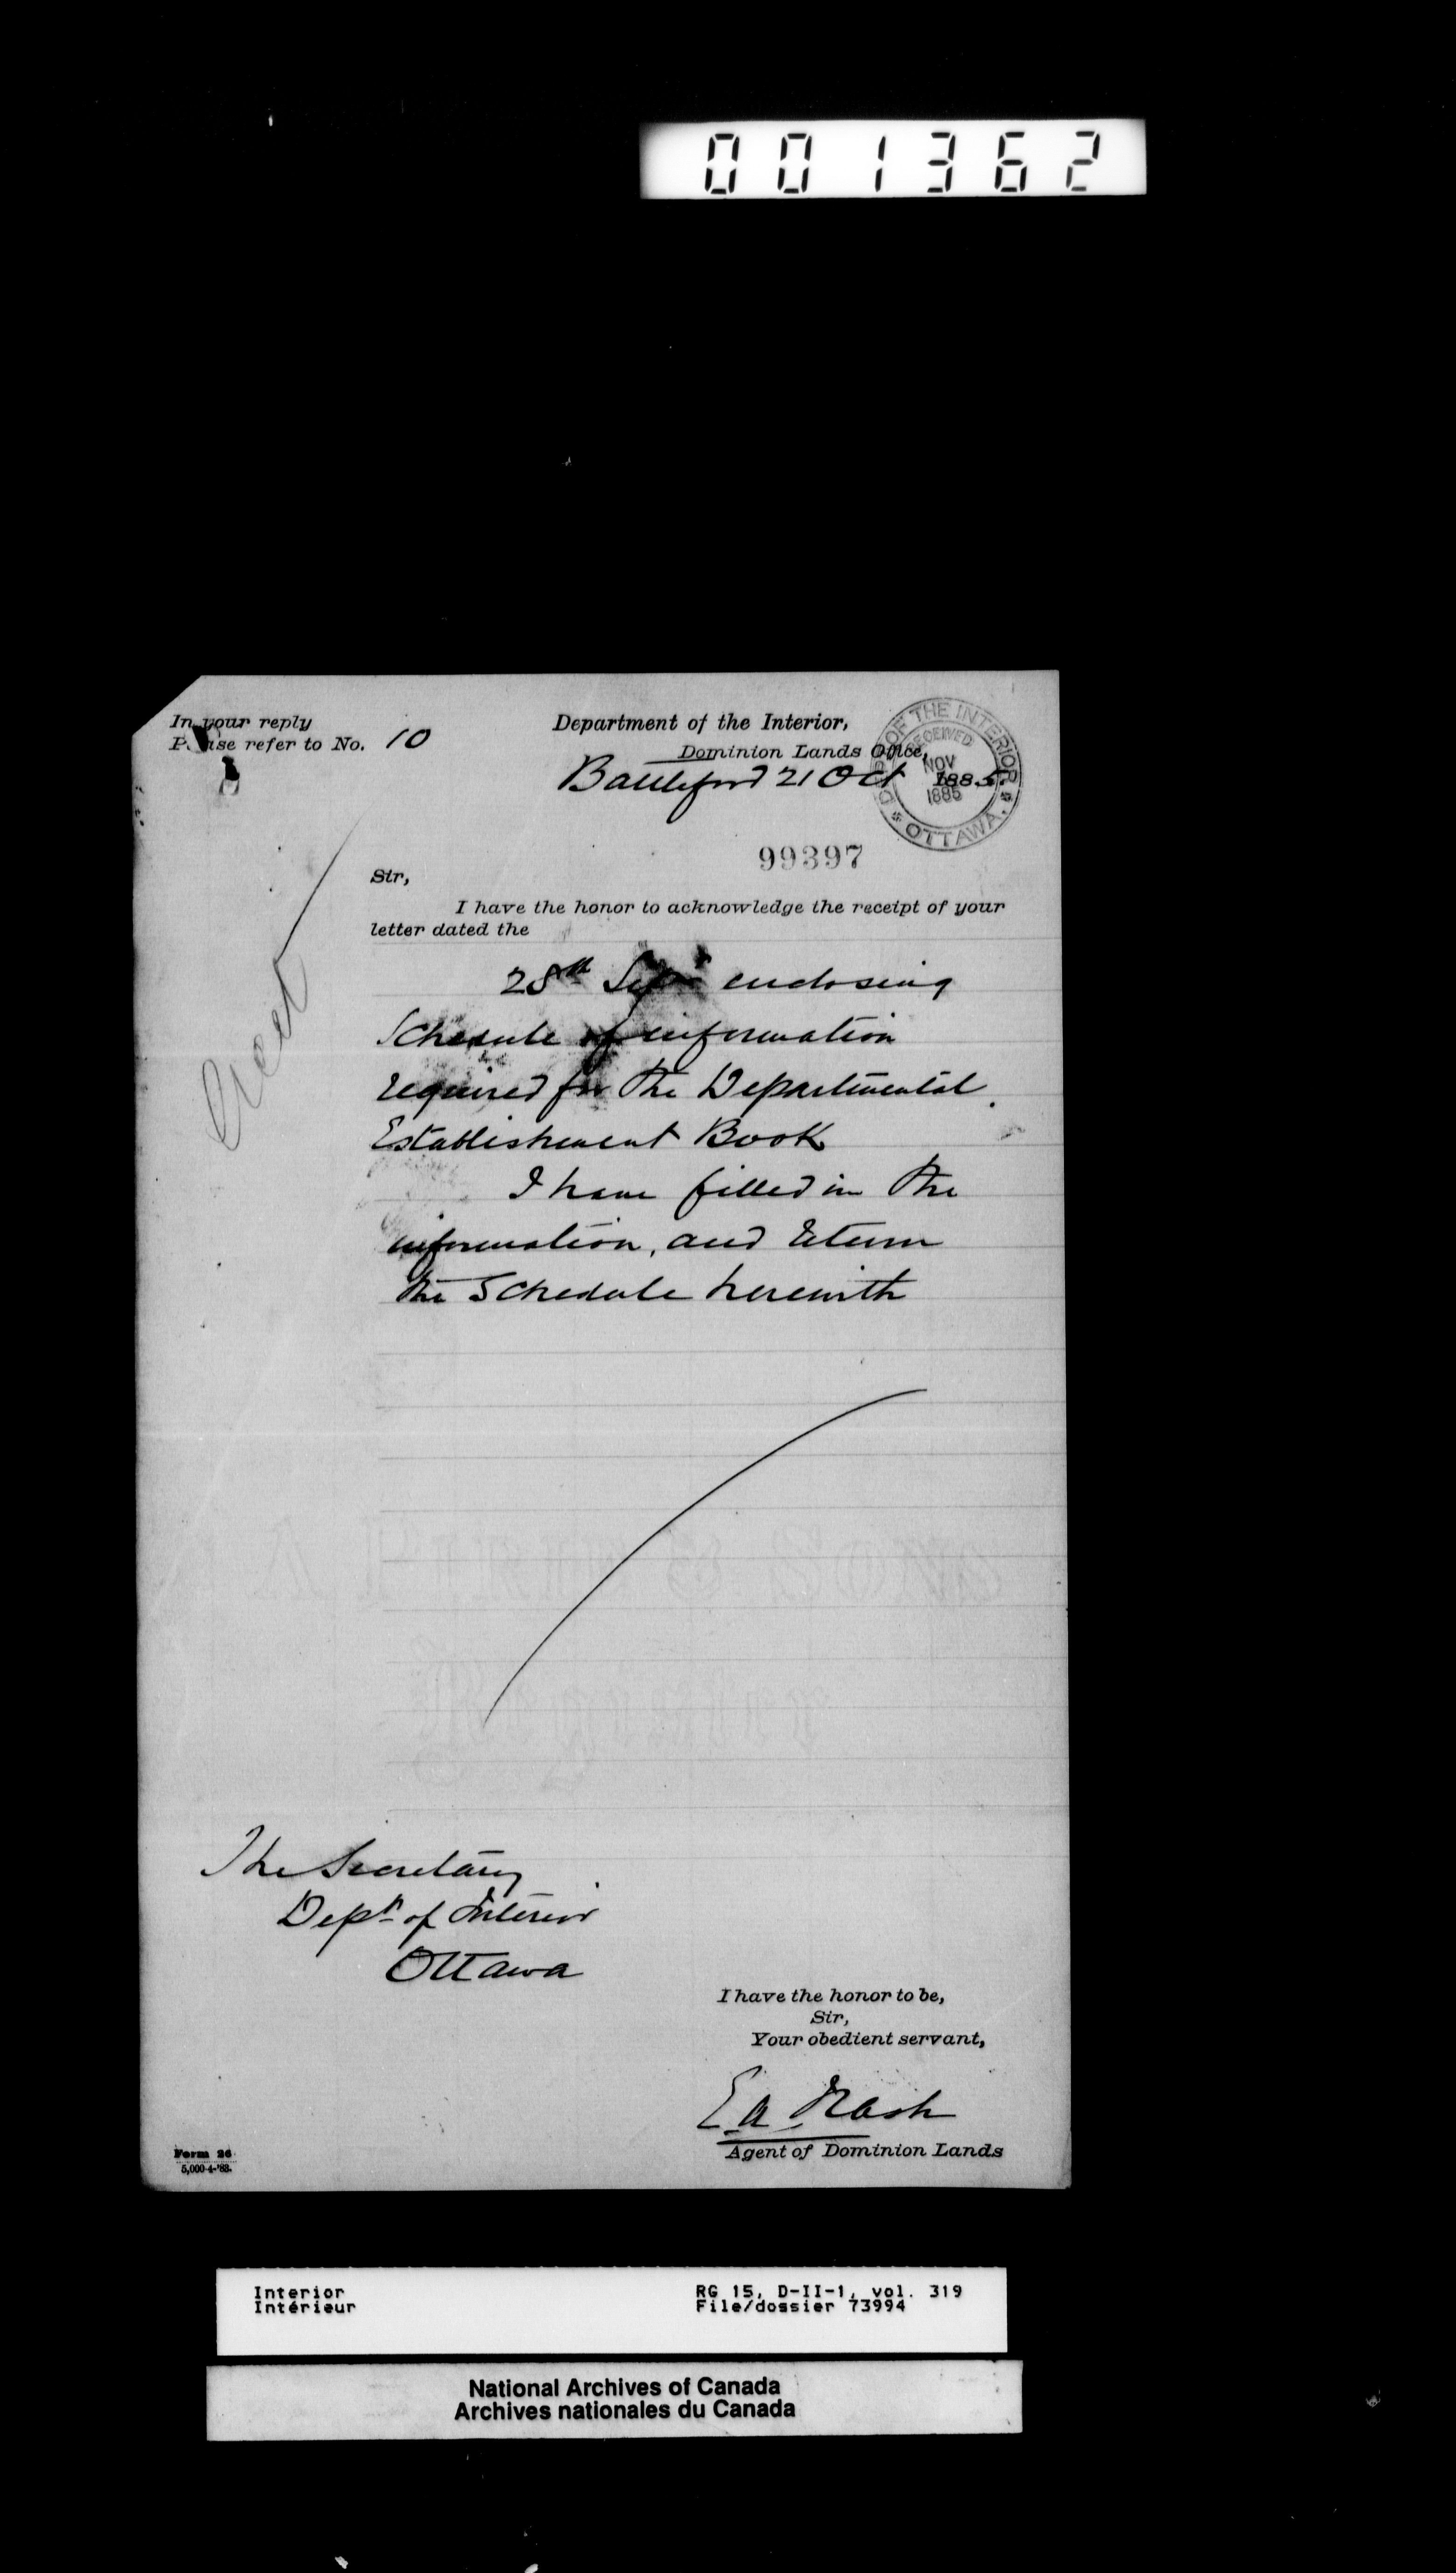 001362
In your reply
Please refer to No. 10
Department of the Interior,
Dominion Lands Office,
Battleford 21 Oct 1885.
DEPT OF THE INTERIOR
RECEIVED
NOV
1885
OTTAWA.
99397
Sir,
I have the honor to acknowledge the receipt of your
letter dated the
28th Sept enclosing
Schedule of information
required for the Departmental
Establishment Book
I have filled in the
information, and return
the Schedule herewith
The Secretary
Dept of Interior
Ottawa
I have the honor to be,
Sir,
Your obedient servant,
E a Nash
Agent of Dominion Lands
Form 26
5,000-4-'83.
Interior
Intérieur
RG 15, D-II-1, vol. 319
File/dossier 73994
National Archives of Canada
Archives nationales du Canada